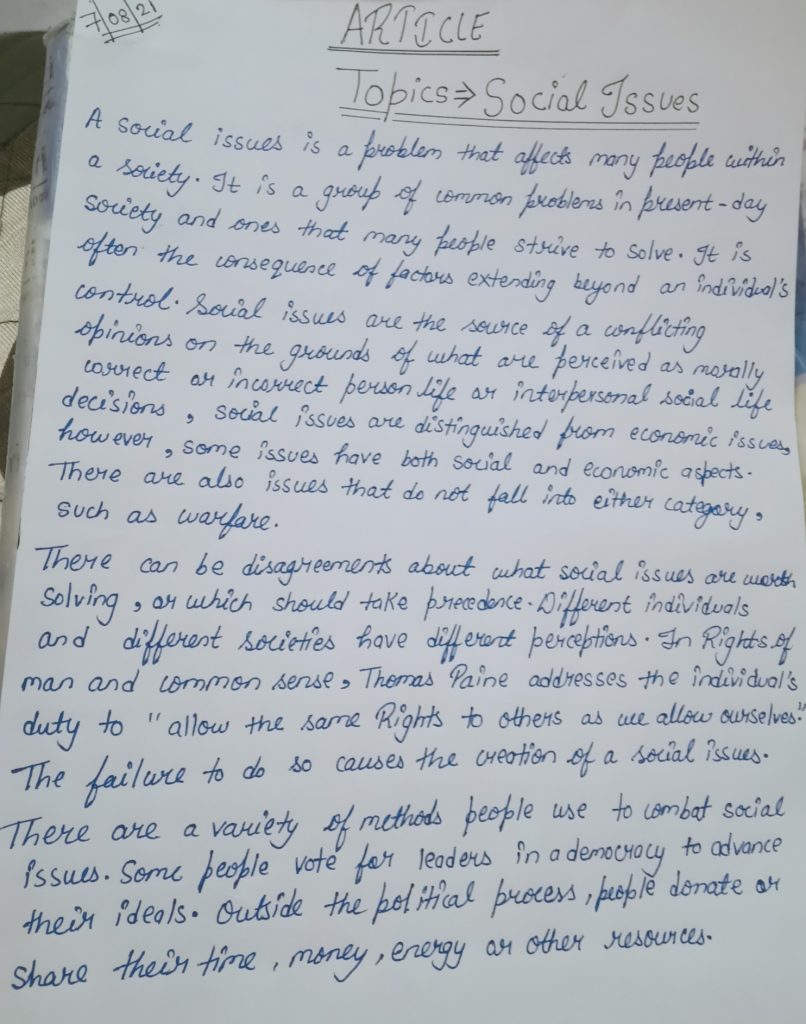 7/08/21
ARTICLE
Topics⇒ Social Issues
A social issues is a problem that affects many people within
a society. It is a group of common problems in present-day
society and ones that many people strive to solve. It is
often the consequence of factors extending beyond an individual's
control. Social issues are the source of a conflicting
opinions on the grounds of what are perceived as morally
correct or incorrect person life or interpersonal social life
decisions, social issues are distinguished from economic issues,
however, some issues have both social and economic aspects.
There are also issues that do not fall into either category,
such as warfare.
There can be disagreements about what social issues are worth
solving, or which should take precedence. Different individuals
and different societies have different perceptions. In Rights of
man and common sense, Thomas Paine addresses the individual's
duty to "allow the same Rights to others as we allow ourselves."
The failure to do so causes the creation of a social issues.
There are a variety of methods people use to combat social
issues. Some people vote for leaders in a democracy to advance
their ideals. Outside the political process, people donate or
share their time, money, energy or other resources.